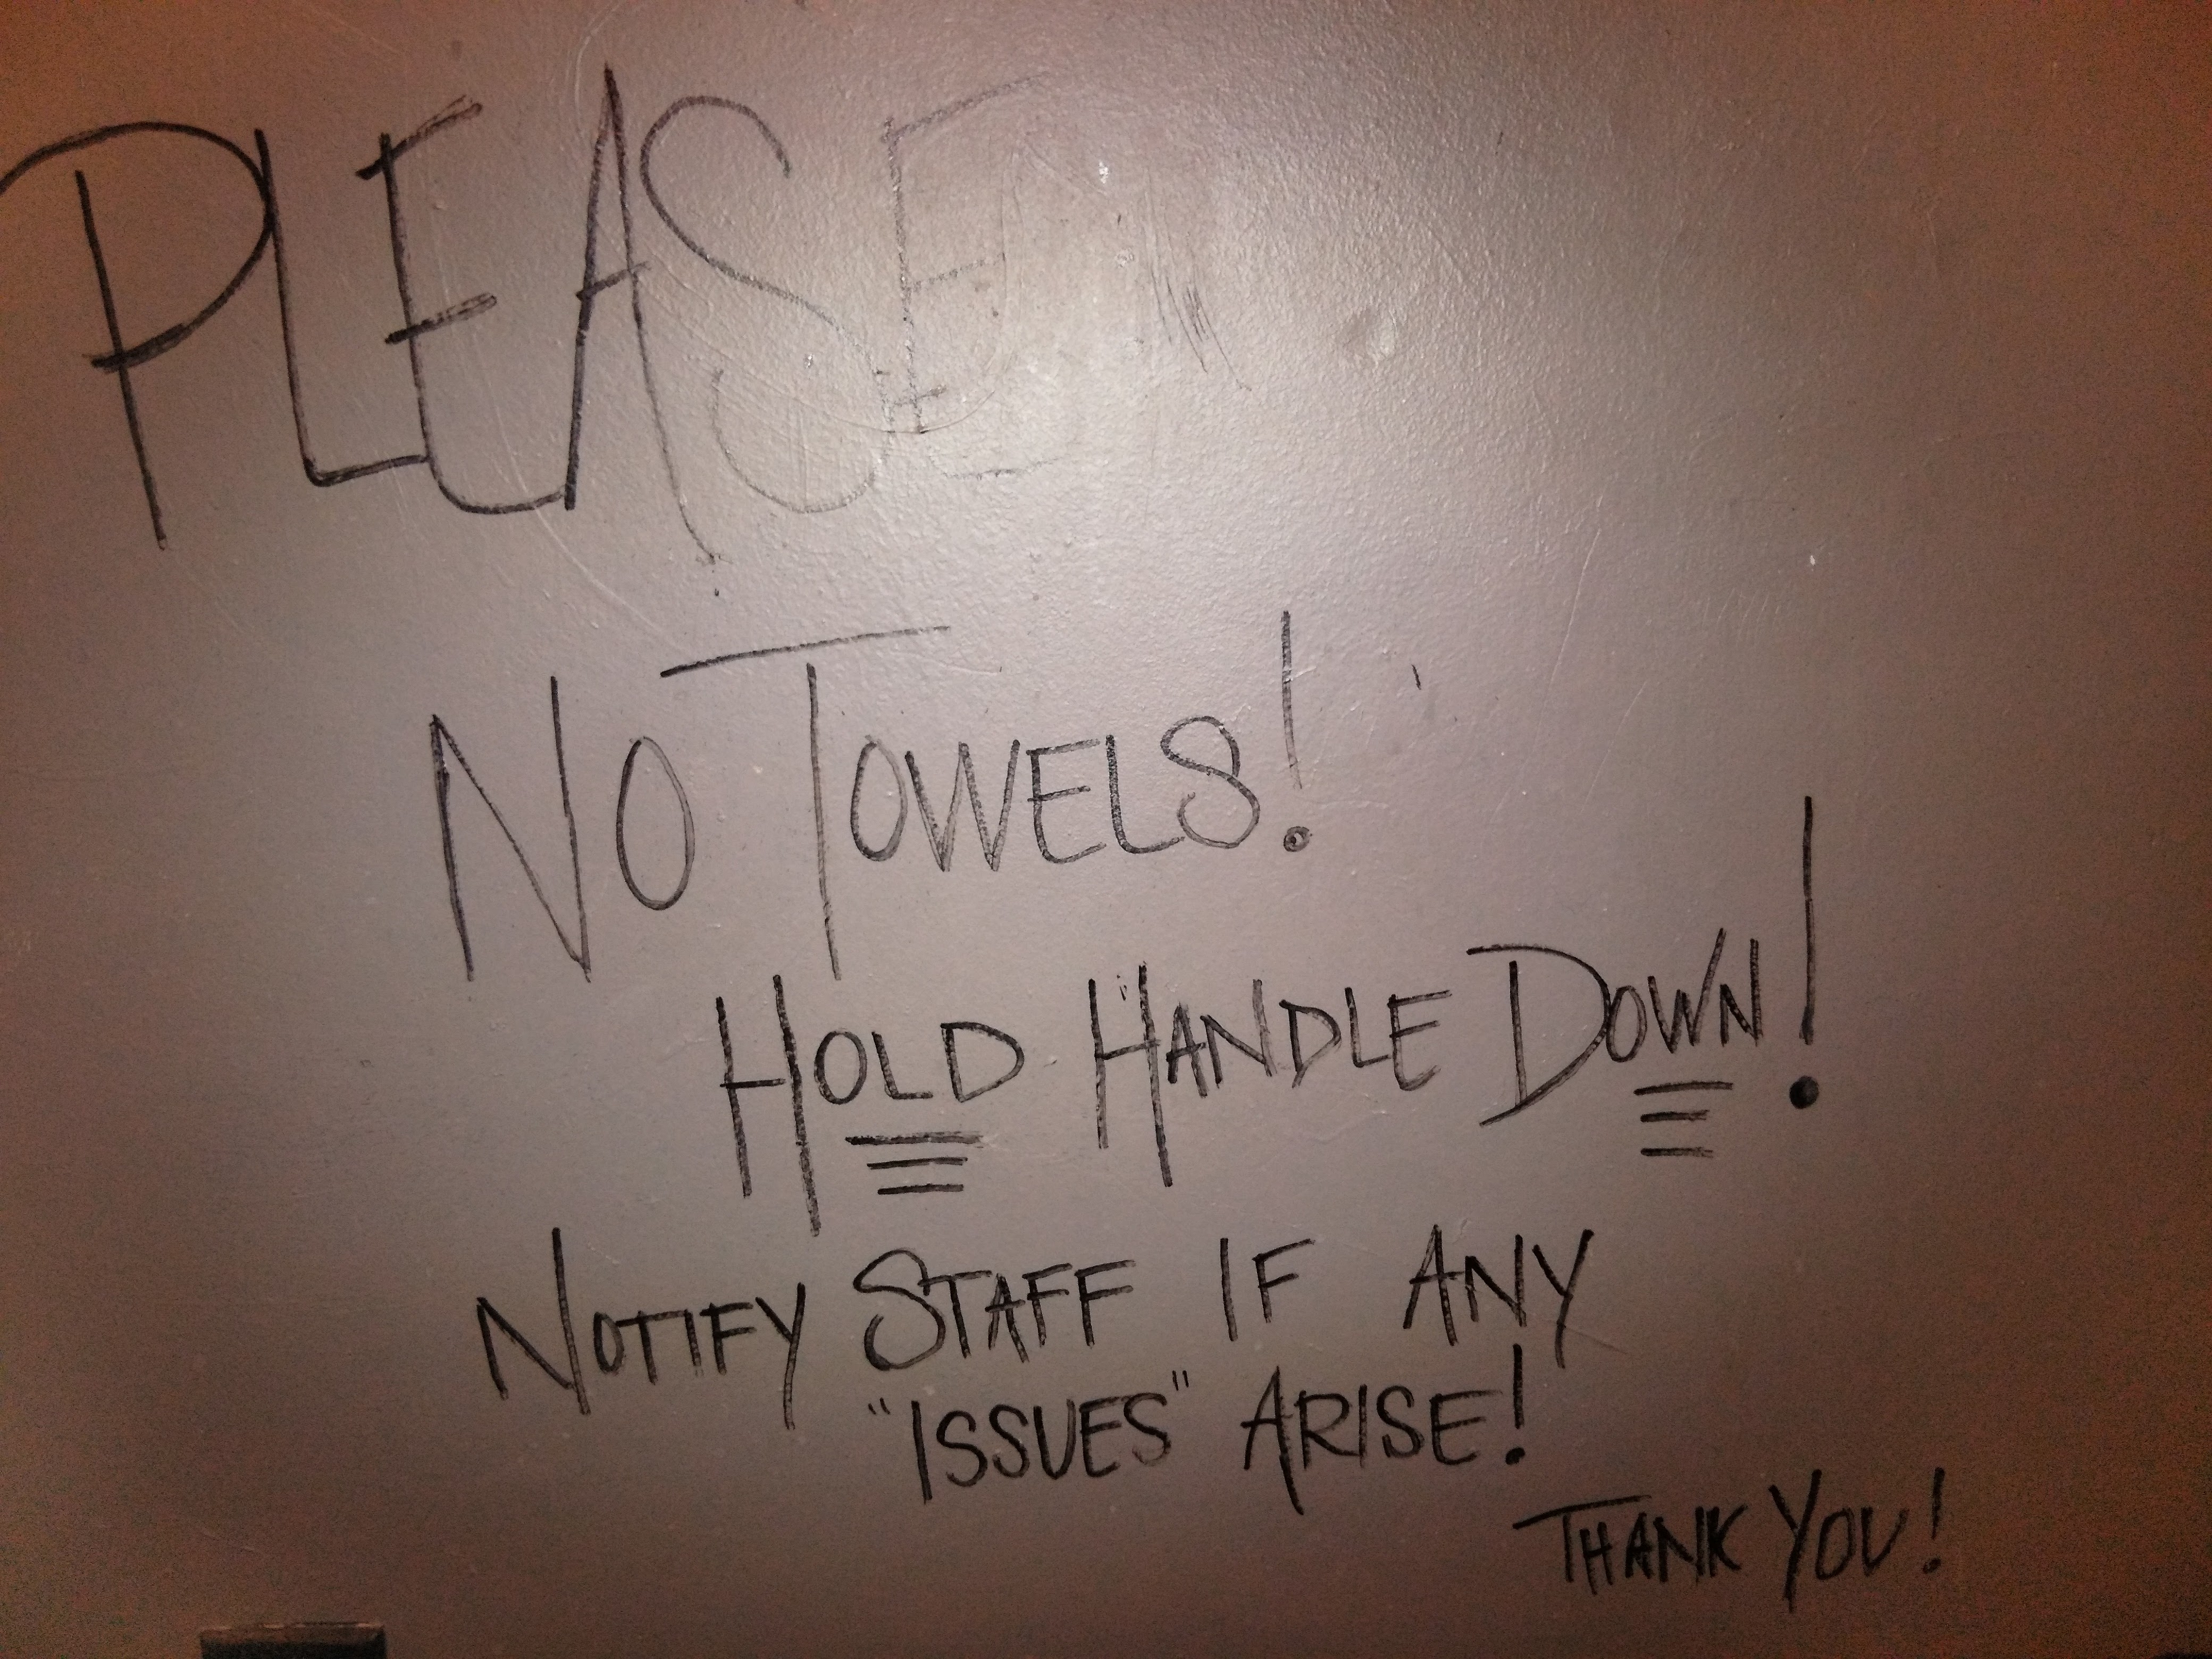 PLEASE
NO TOWELS!
HOLD HANDLE DOWN!
NOTIFY STAFF IF ANY
"ISSUES" ARISE!
THANK YOU!